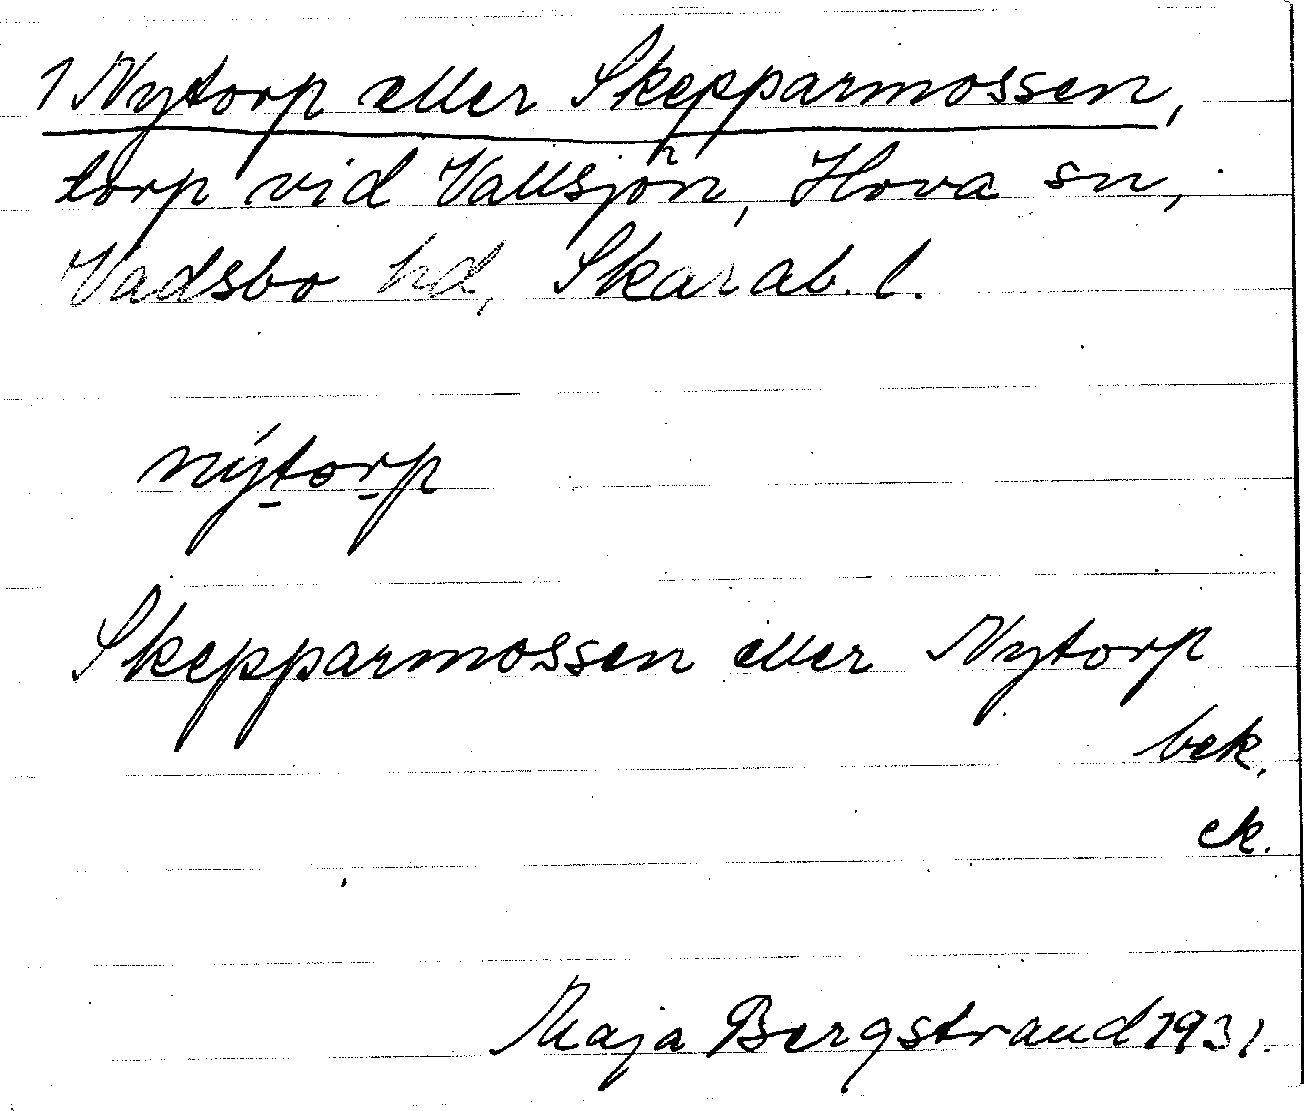 1 Nytorp eller Skepparmossen,
torp vid Vallsjön, Hova sn,
Vadsbo hd, Skarab. l.
nýtorp
Skepparmossen eller Nytorp
bek.
ek.
Maja Bergstrand 1931.